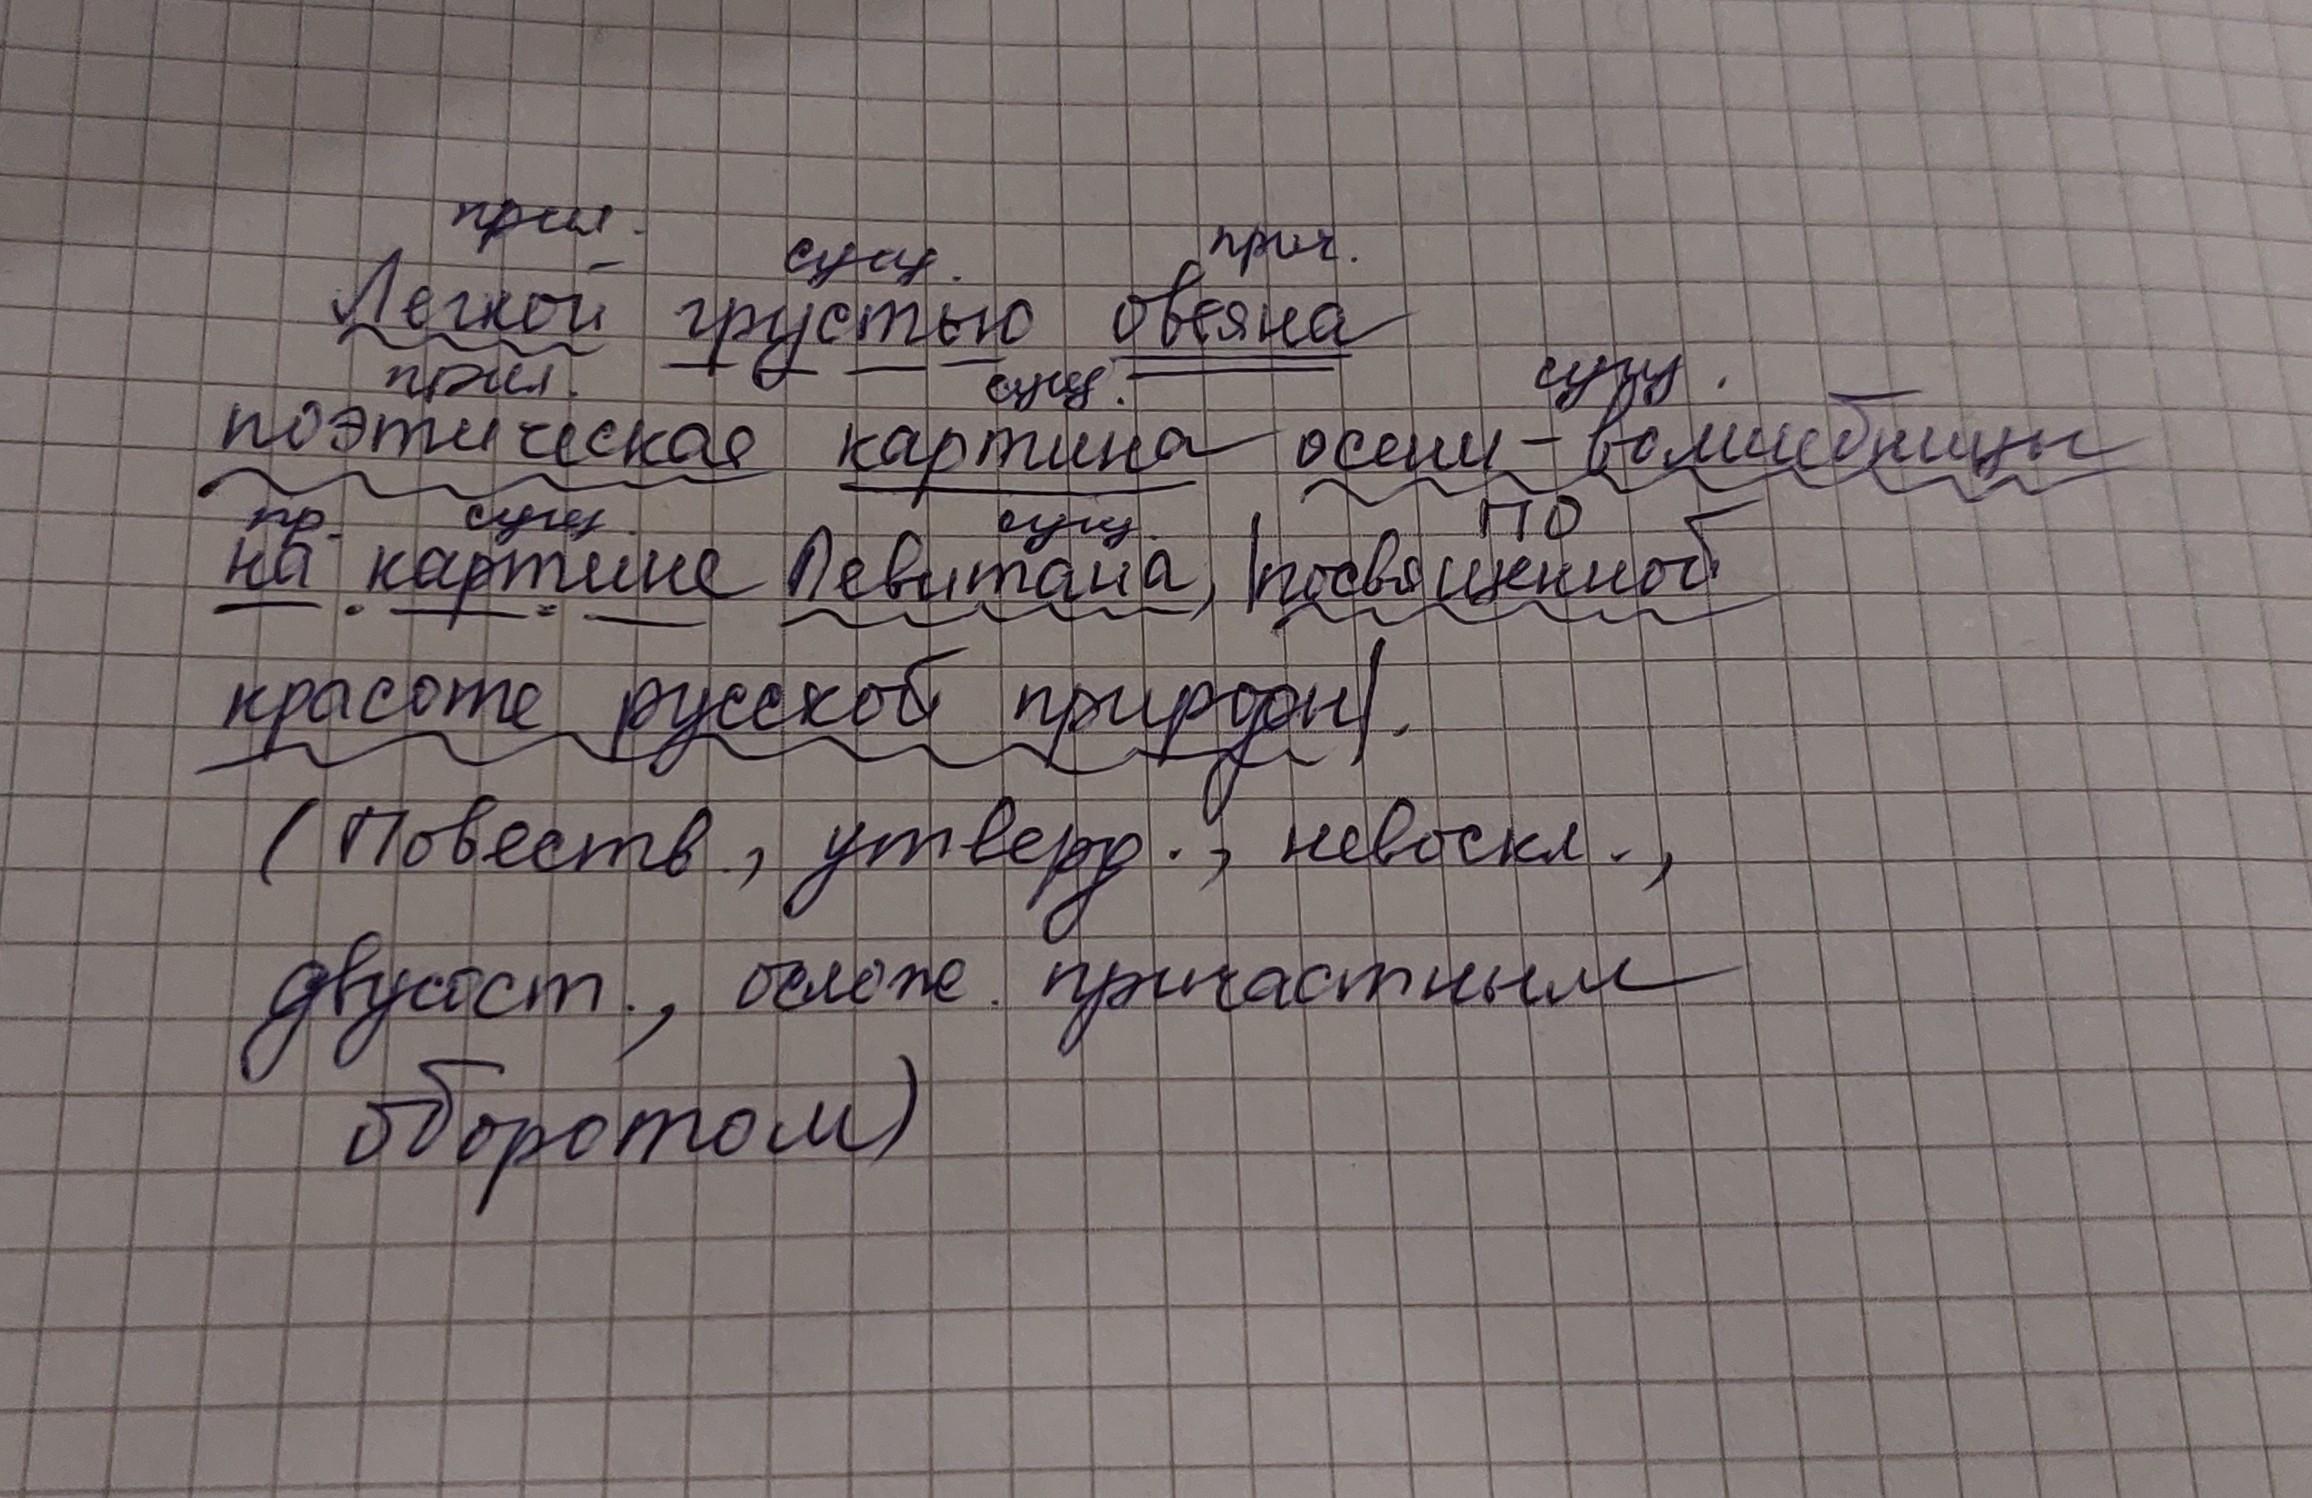 прил. сущ. прич.
Легкой грустью овеяна
прил. сущ. сущ.
поэтическая картина осени-волшебницы
пр. сущ. сущ. ПО
на картине Левитана, |посвященной
красоте русской природы|.
(Повеств., утверд., невоскл.,
двусост., ослож. причастным
оборотом)